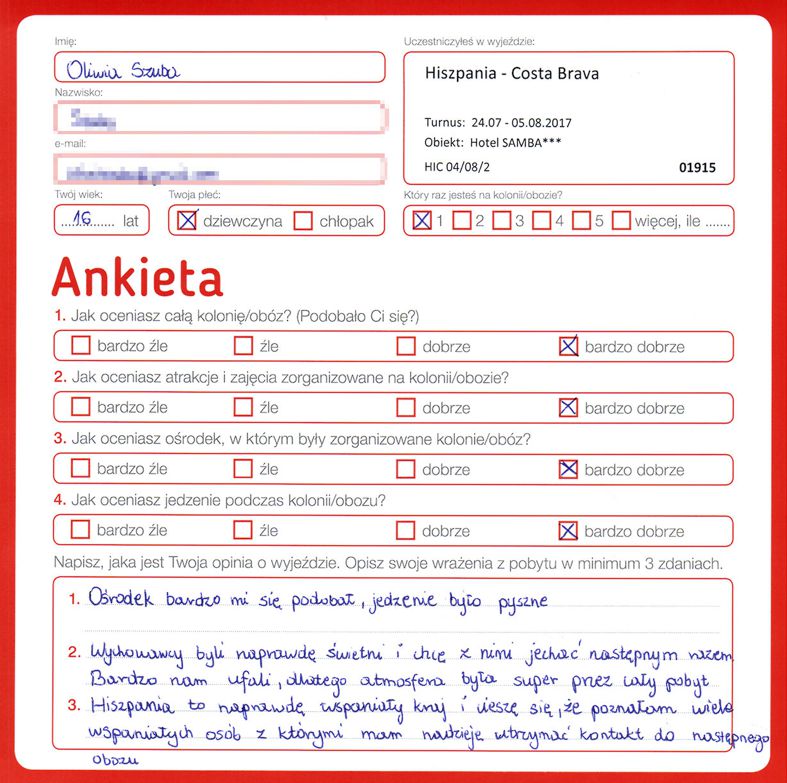 Imię:
Oliwia Szuba
Nazwisko:
e-mail:
Twój wiek:
Twoja płeć:
16 lat
dziewczyna chłopak
Uczestniczyłeś w wyjeździe:
Hiszpania - Costa Brava
Turnus: 24.07 - 05.08.2017
Obiekt: Hotel SAMBA***
HIC 04/08/2 01915
Który raz jesteś na kolonii/obozie?
1 2 3 4 5 więcej, ile .......
Ankieta
1. Jak oceniasz całą kolonię/obóz? (Podobało Ci się?)
bardzo źle źle dobrze bardzo dobrze
2. Jak oceniasz atrakcje i zajęcia zorganizowane na kolonii/obozie?
bardzo źle źle dobrze bardzo dobrze
3. Jak oceniasz ośrodek, w którym były zorganizowane kolonie/obóz?
bardzo źle źle dobrze bardzo dobrze
4. Jak oceniasz jedzenie podczas kolonii/obozu?
bardzo źle źle dobrze bardzo dobrze
Napisz, jaka jest Twoja opinia o wyjeździe. Opisz swoje wrażenia z pobytu w minimum 3 zdaniach.
1. Ośrodek bardzo mi się podobał, jedzenie było pyszne
2. Wychowawcy byli naprawdę świetni i chcę z nimi jechać następnym razem
Bardzo nam ufali, dlatego atmosfera była super przez cały pobyt
3. Hiszpania to naprawdę wspaniały kraj i cieszę się, że poznałam wiele
wspaniałych osób z którymi mam nadzieję utrzymać kontakt do następnego
obozu